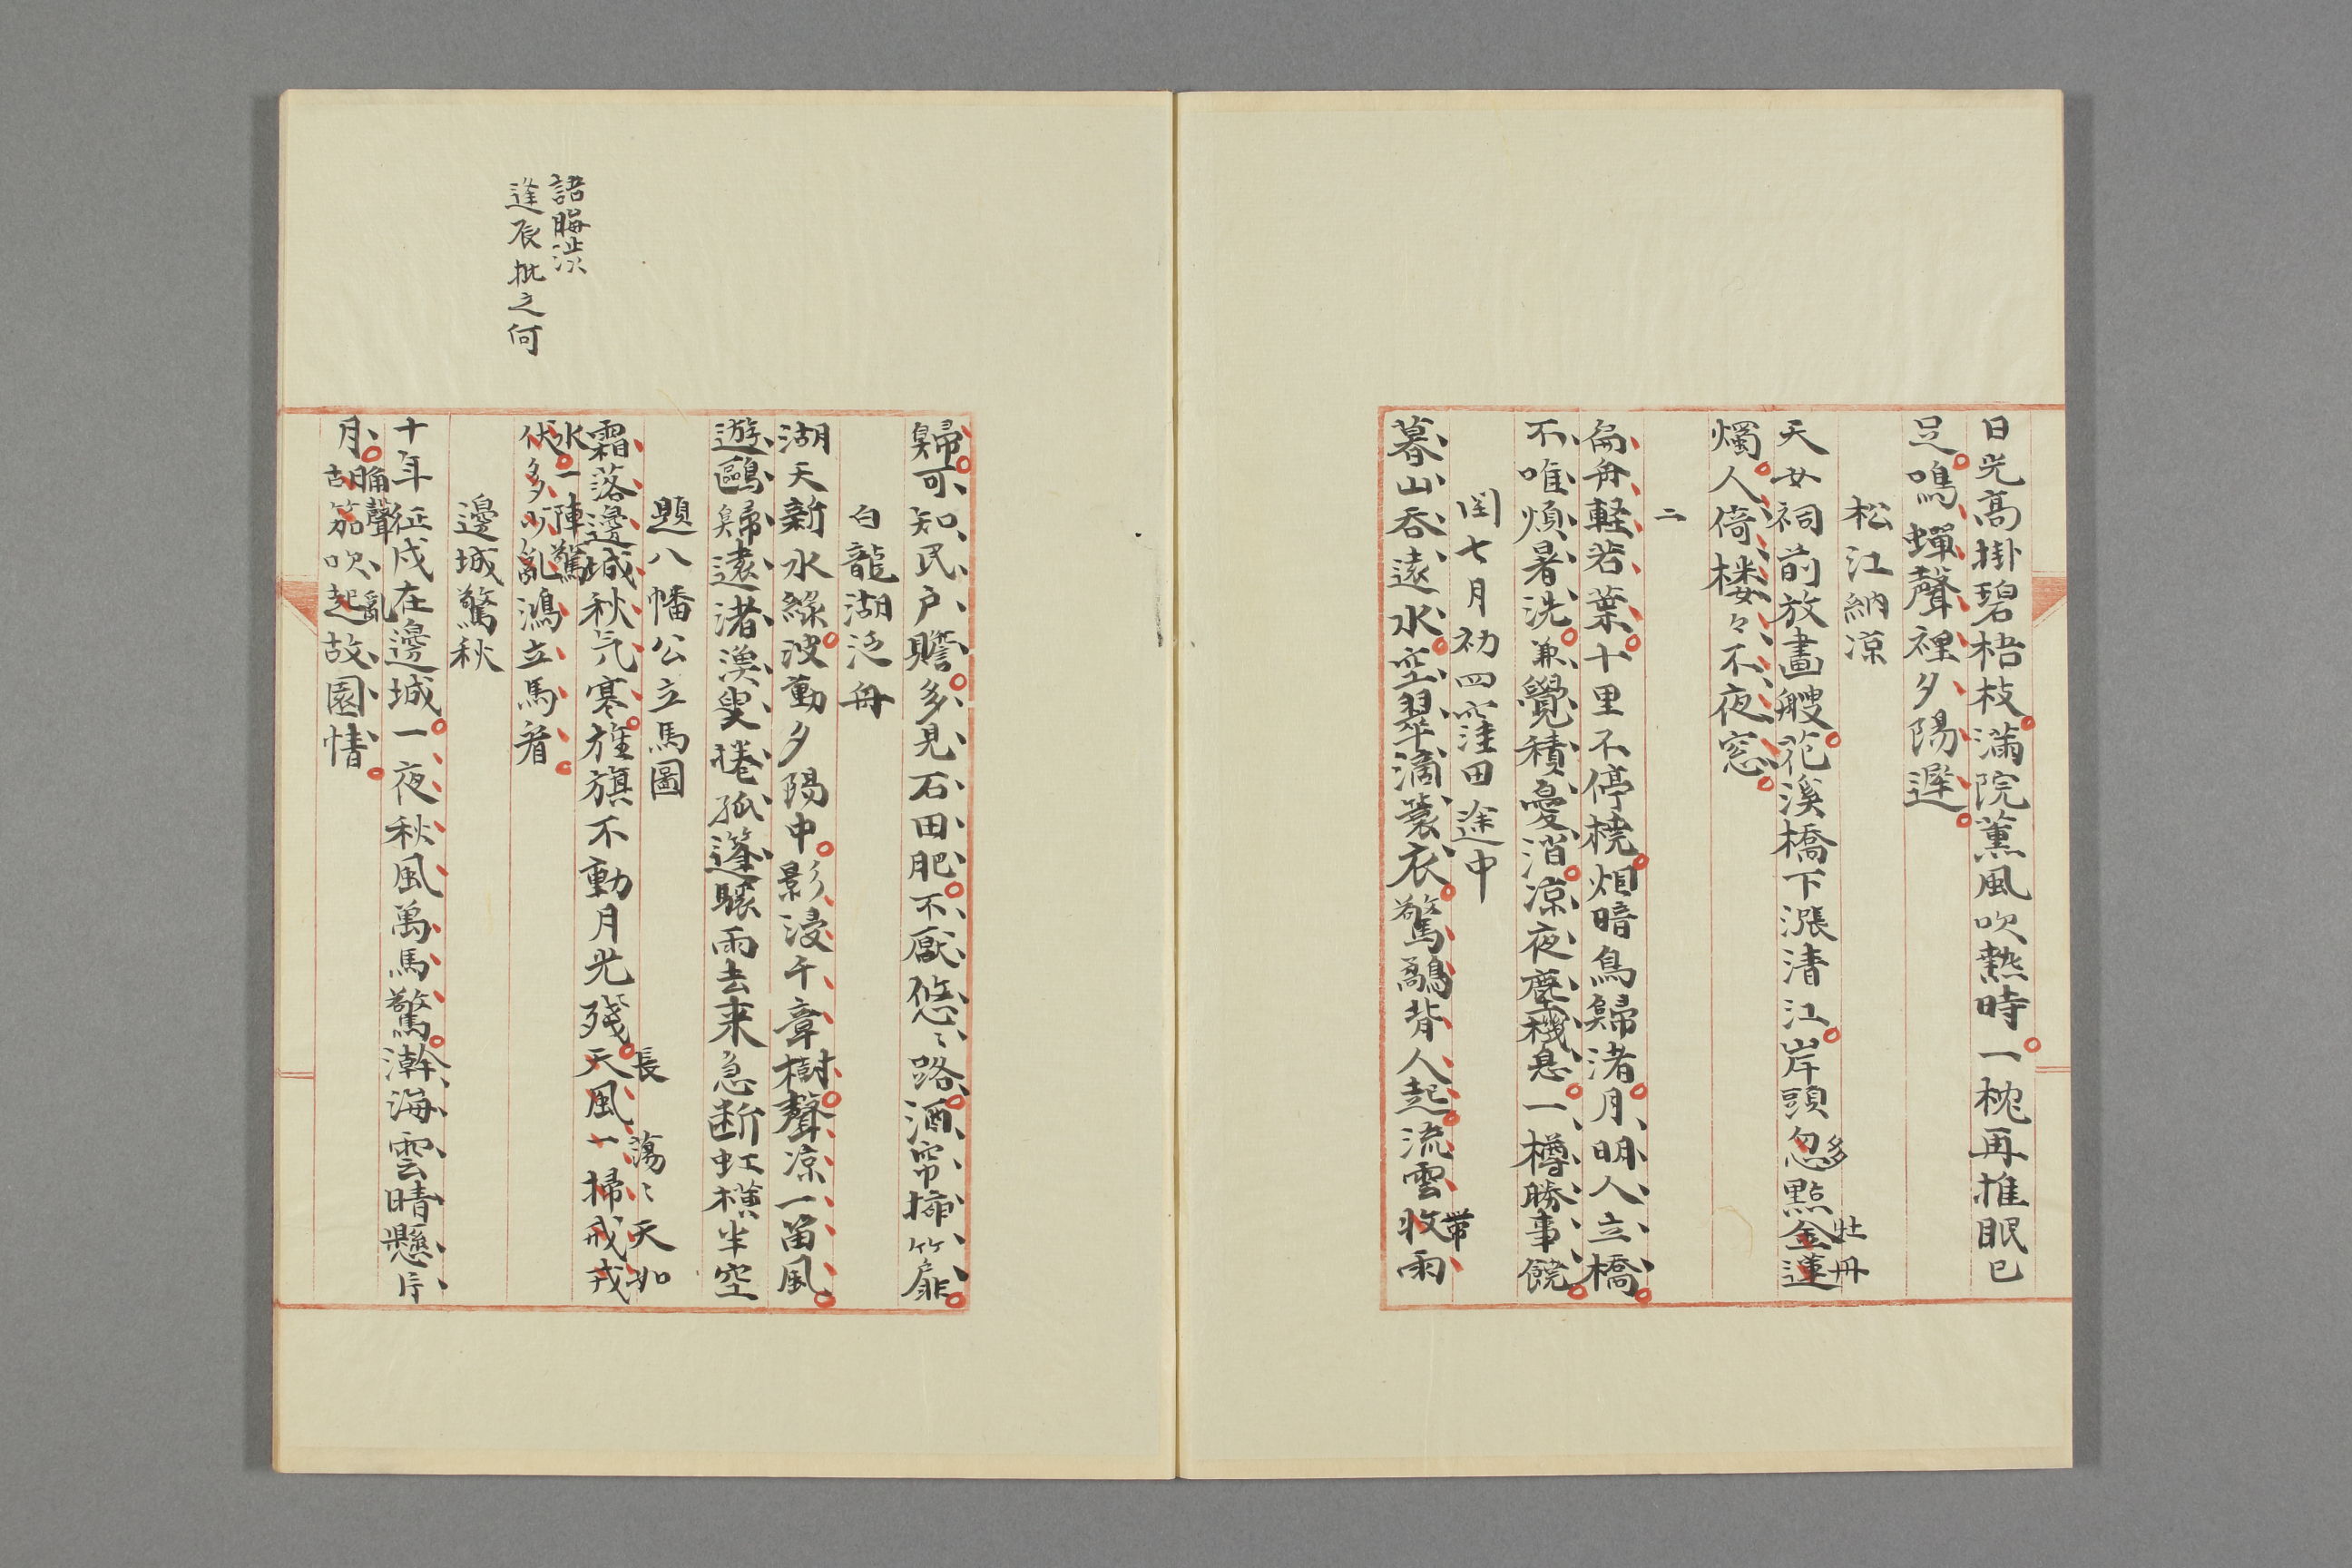 日光高掛碧梧枝滿院薰風吹熱時一枕再推眠已
足鳴蟬聲裡夕陽遲
松江納涼
天女祠前放畫艘花溪橋下漲清江岸頭忽點金蓮
多
牡丹
燭人倚楼々不夜窓
二
扁舟軽若葉十里不停橈烟暗鳥歸渚月明人立橋
不唯煩暑洗兼覺積憂消涼夜塵機息一樽勝事饒
閏七月初四窪田途中
暮山吞遠水空翠滴蓑衣驚鷸背人起流雲收雨
帶
歸可知民戶贍多見石田肥不厭悠々路酒帘挿竹扉
白龍湖泛舟
湖天新水綠波動夕陽中影浸千章樹聲涼一笛風
遊鷗歸遠渚漁叟捲孤篷驟雨去来急断虹橫半空
題八幡公立馬圖
霜落邊城秋氣寒旌旗不動月光殘天風一掃戒戎
長 蕩々天如
水一陣驚
伏多少亂鴻立馬看
語晦渋
逢辰批之何
邊城驚秋
十年征戍在邊城一夜秋風萬馬驚瀚海雲晴懸片
月胡笳吹起故園情
聲亂